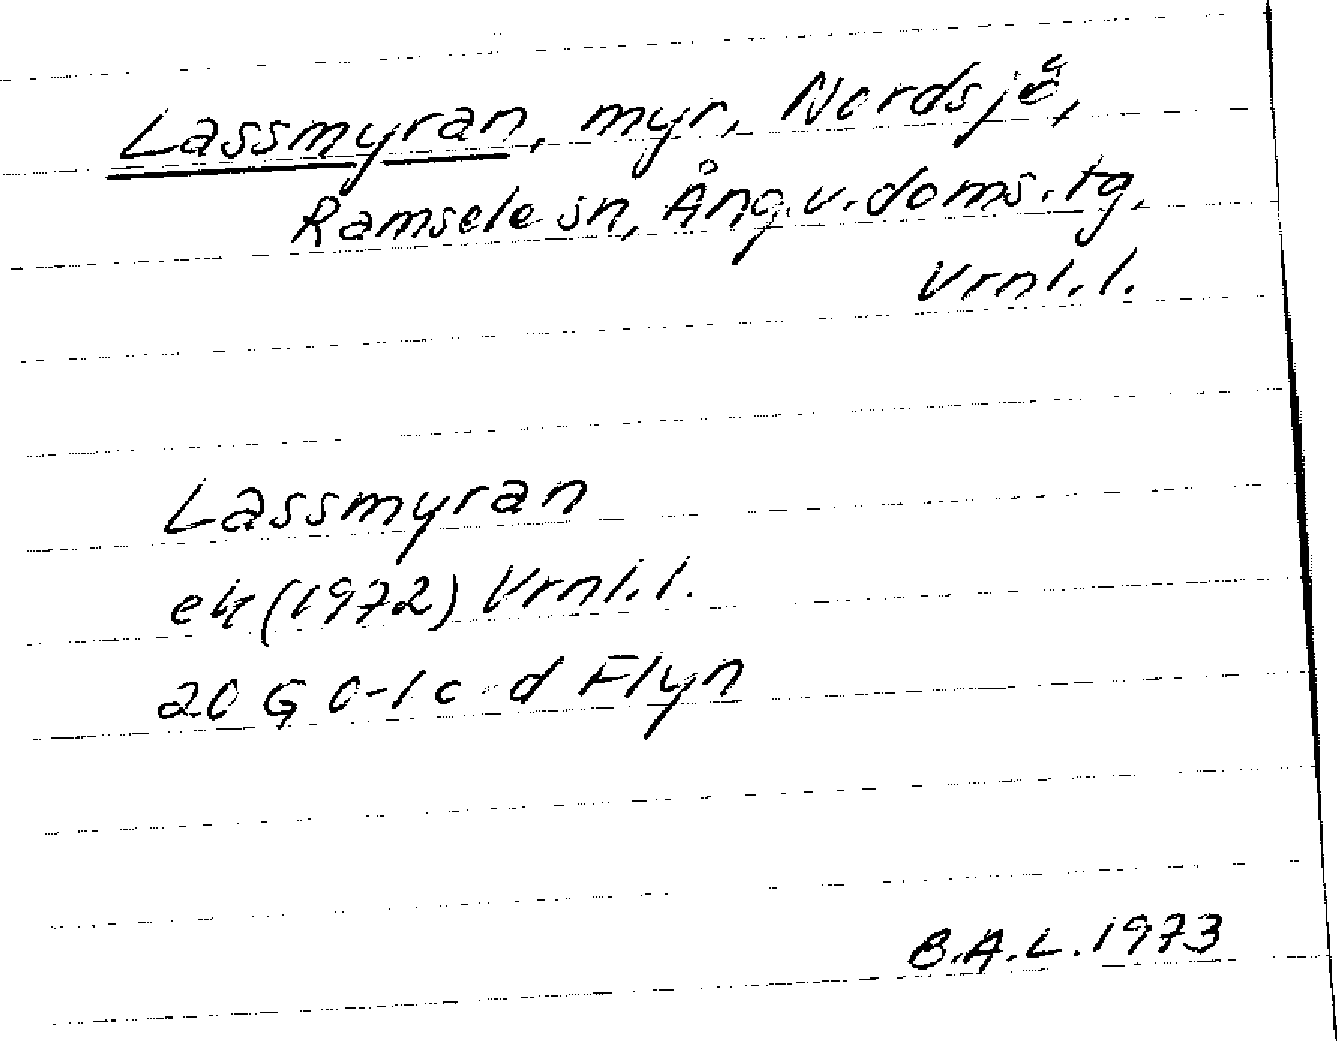 Lassmyran, myr, Nordsjö,
Ramsele sn, Ång.v.doms.tg,
Vrnl.l.
Lassmyran
ek (1972) Vrnl.l.
20 G 0-1 c-d Flyn
B.A.L. 1973